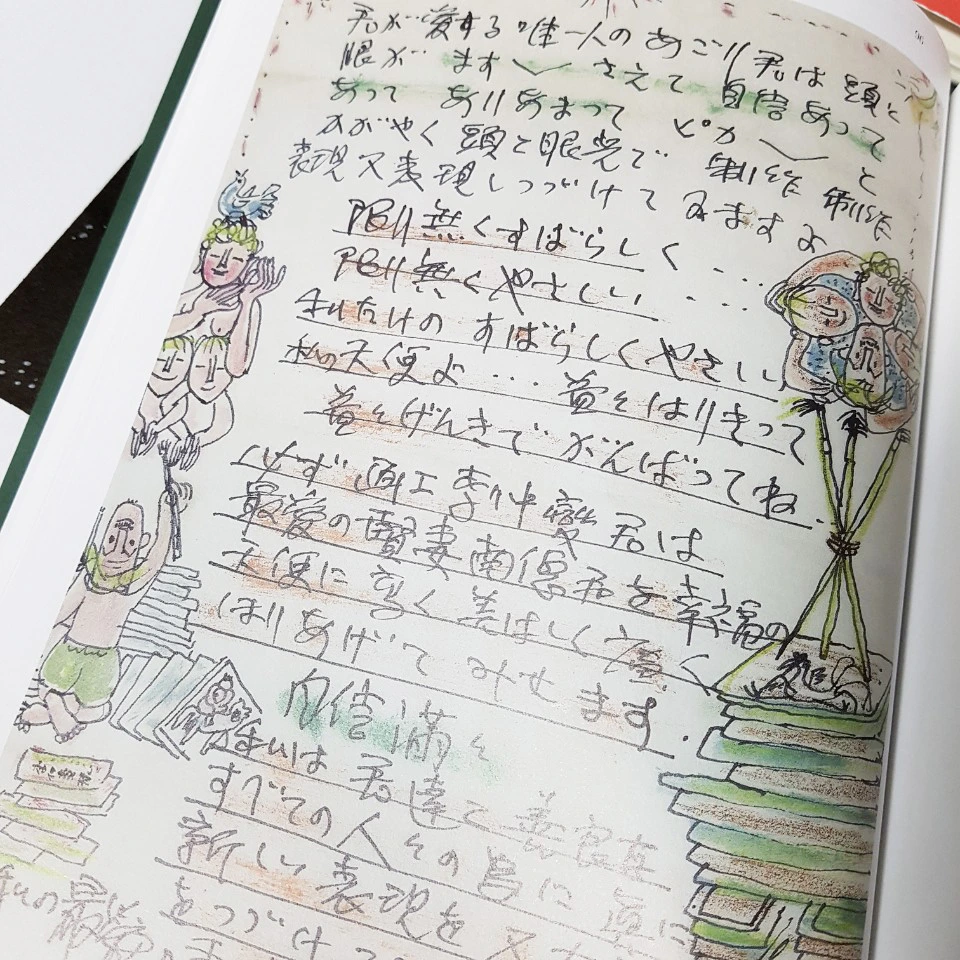 君が愛する唯一人のあごりㇾ君は頭と
眼がます〱さえて自信あって
あって ありあまって ピカ〱と
かがやく頭と眼光で 制作制作
表現又表現しつづけてゐますよ
限り無くすばらしく・・・
限り無くやさしい・・・
私だけの すばらしくやさしい
私の天使よ・・・益々はりきって
益々げんきでがんばってね.
必ず画工李仲燮君は
最愛の賢妻南徳君を幸福の
天使に高く美しく広く
ほりあげてみせます.
自信満々
私は君達と善良な
すべての人々の為に真に
新しい表現を又
をつづけて
私の最
96